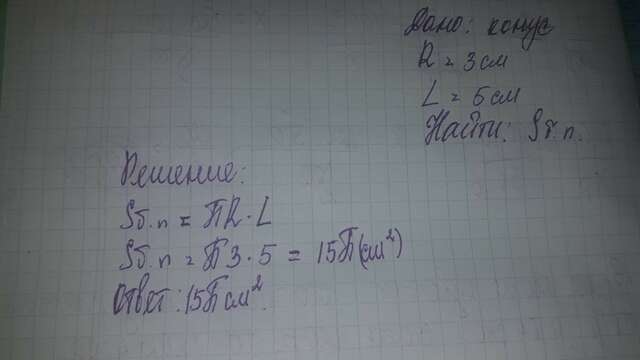 Дано: конус
R = 3 см
L = 5 см
Найти: Sб.п.
Решение:
Sб.п = ПR · L
Sб.п = П3 · 5 = 15П(см²)
Ответ: 15П см².